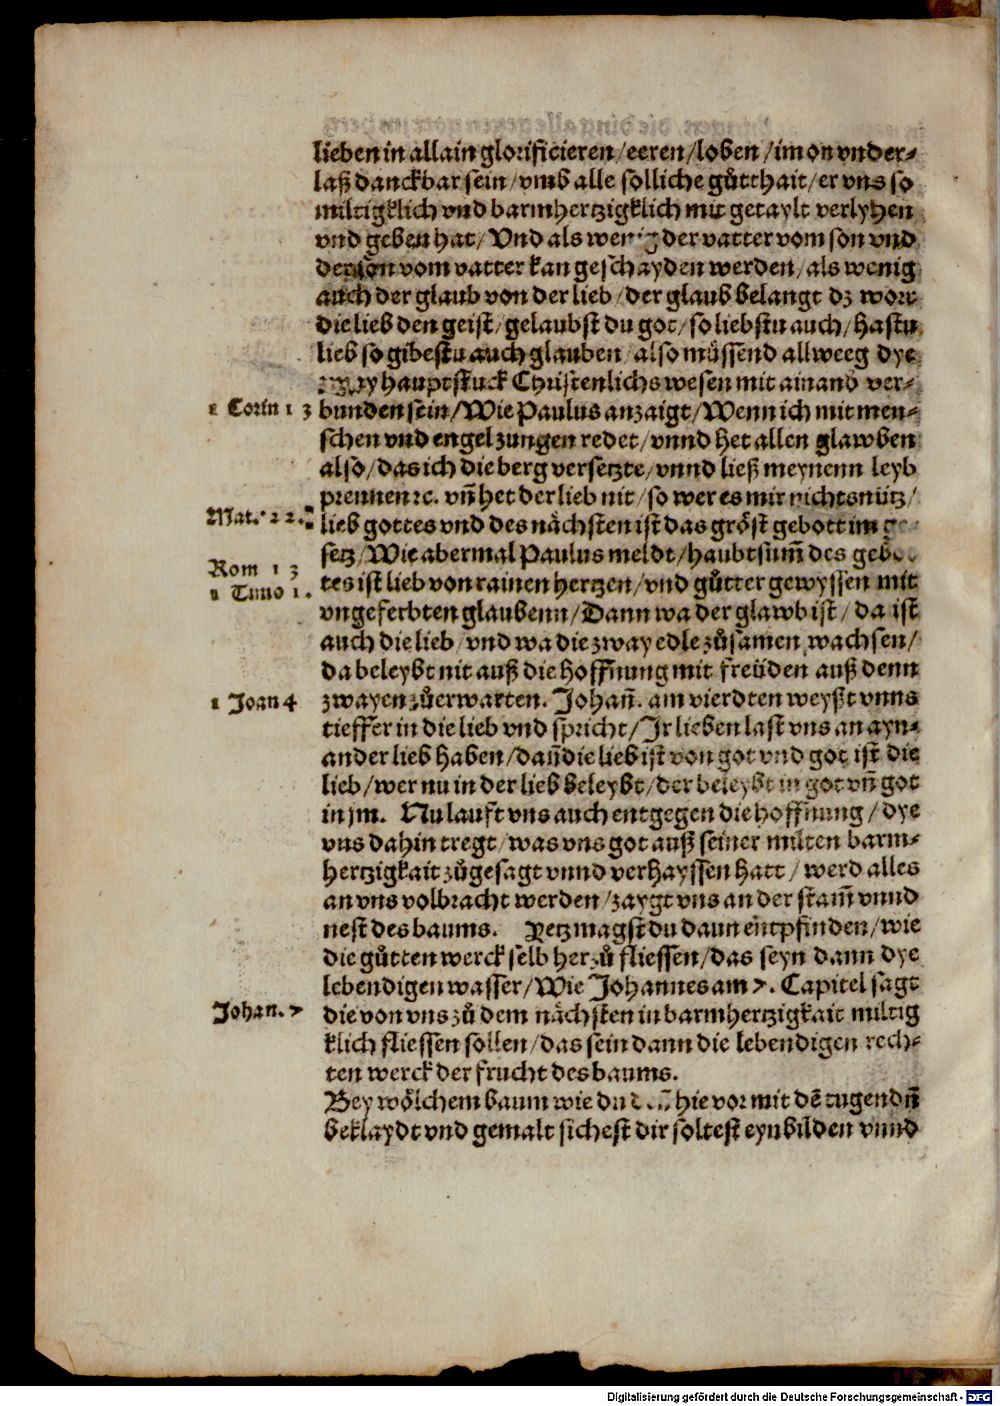 lieben in allain glorificieren/eeren/loben/im on vnder-
laß danckbar sein/vmb alle solliche gůtthait/er vns so
miltigklich vnd barmhertzigklich mit getaylt verlyhen
vnd geben hat/Vnd als wenig der vatter vom son vnd
der son vom vatter kan geschayden werden/als wenig
auch der glaub von der lieb/der glaub belangt dz wort
die lieb den geist/gelaubst du got/so liebstu auch/hastu
lieb so gibestu auch glauben/also müssend allweeg dye
zway hauptstuck Christenlichs wesen mit ainand ver-
1 Corin 1 3 bunden sein/Wie Paulus anzaigt/Wenn ich mit men-
schen vnd engel zungen redet/vnnd het allen glawben
also/das ich die berg versetzte/vnnd ließ meynenn leyb
prennen ⁊c. vñ het der lieb nit/so wer es mir nichts nütz/
Mat. 2 2. lieb gottes vnd des nächsten ist das gröst gebott im
setz/Wie abermal Paulus meldt/haubtsum̃ des gebo
Rom 1 3
1 Timo 1. tes ist lieb von rainen hertzen/vnd gůtter gewyssen mit
vngeferbten glaubenn/Dann wa der glawb ist/da ist
auch die lieb/vnd wa die zway edle zůsamen wachsen/
da beleybt nit auß die hoffnung mit freüden auß denn
1 Joan 4 zwayen zůerwarten. Johañ. am vierdten weyßt vnns
tieffer in die lieb vnd spricht/Ir lieben last vns an ayn-
ander lieb haben/dañ die lieb ist von got vnd got ist die
lieb/wer nu in der lieb beleybt/der beleybt in got vñ got
in jm. Nu lauft vns auch entgegen die hoffnung/dye
vns dahin tregt/was vns got auß seiner milten barm-
hertzigkait zůgesagt vnnd verhayssen hatt/werd alles
an vns volbracht werden/zaygt vns an der stam̃ vnnd
nest des baums. Yetz magst du dann entpfinden/wie
die gůtten werck selb her zů fliessen/das seyn dann dye
lebendigen wasser/Wie Johannes am 7. Capitel sagt
Johan. 7 die von vns zů dem nächsten in barmhertzigkait miltig
klich fliessen sollen/das sein dann die lebendigen rech-
ten werck der frucht des baums.
Bey wölchem baum wie du hie vor mit dẽ tugendñ
beklaydt vnd gemalt sichest dir soltest eynbilden vnnd
Digitalisierung gefördert durch die Deutsche Forschungsgemeinschaft - DFG